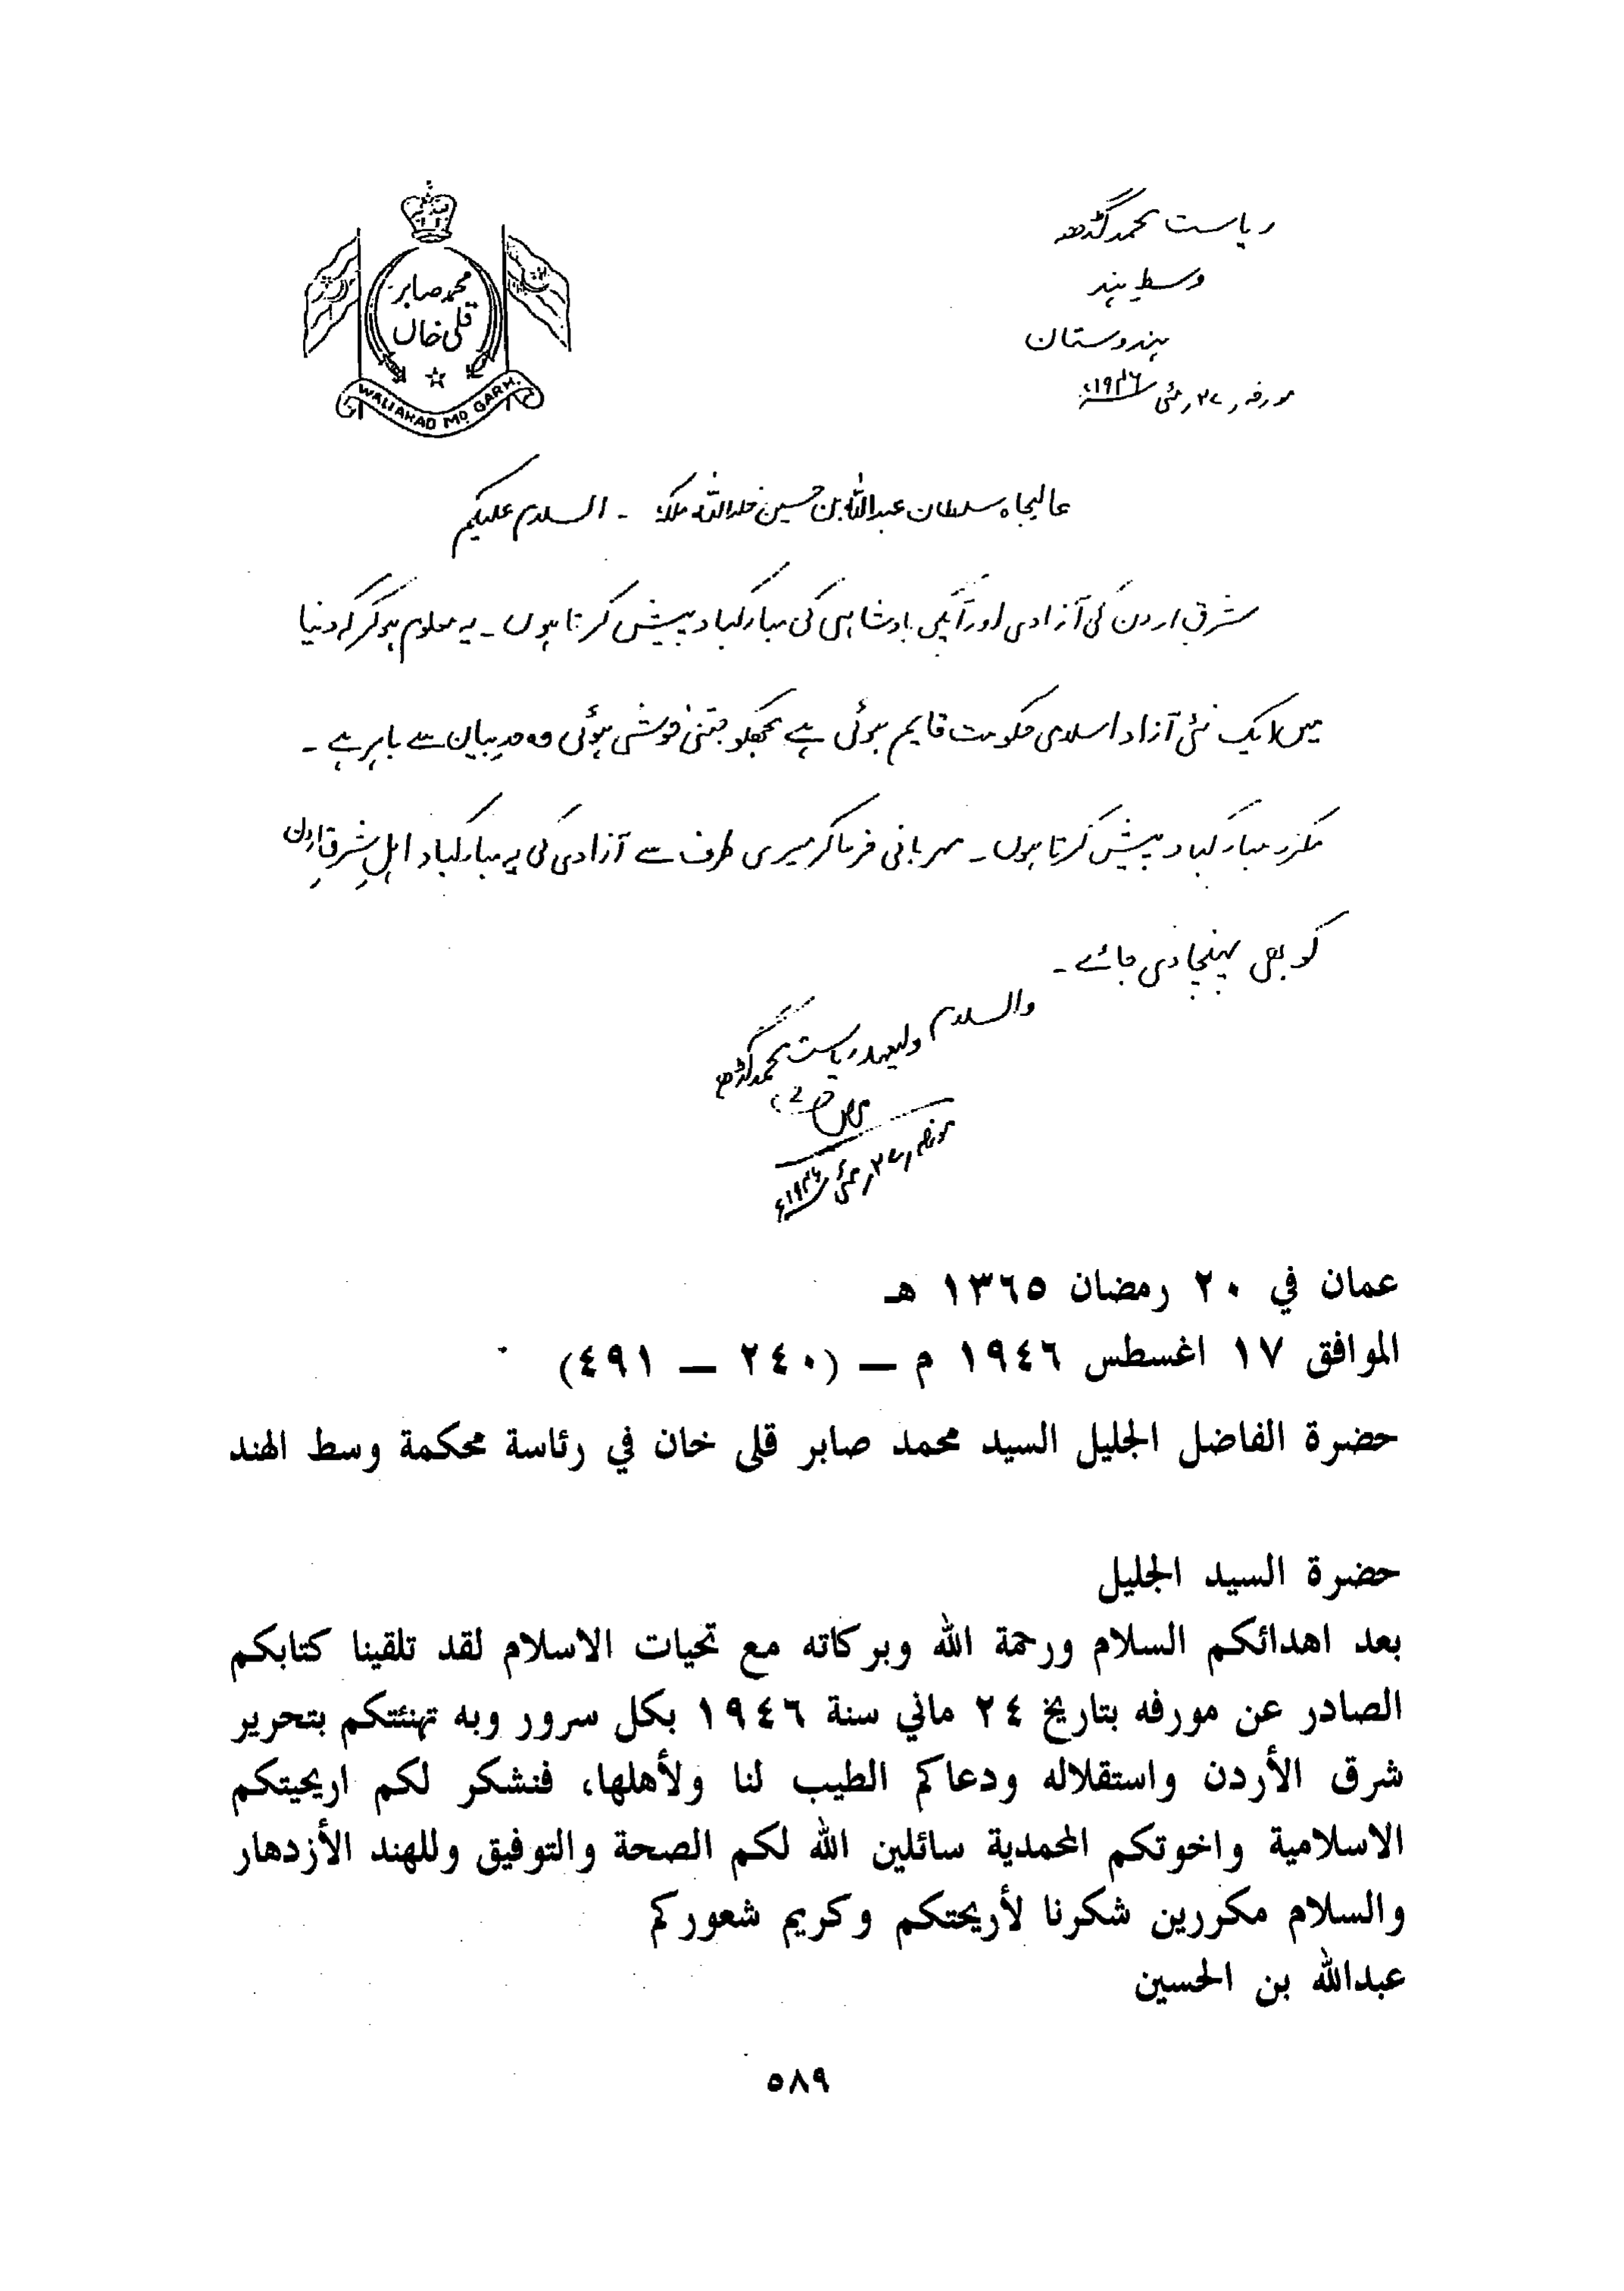 محمد صابر
قلی خاں
WALIAHAD MD. GARH.
ریاست محمد گڈھ
وسط ہند
ہندوستان
مورخہ ۲۷ مئی ۱۹۴۶ء
عالیجاہ سلطان عبداللہ بن حسین خلد اللہ ملکہ ۔ السلام علیکم
مشرق اردن کی آزادی اور آپکی بادشاہی کی مبارکباد پیش کرتا ہوں ۔ یہ معلوم ہوکر کہ دنیا
میں ایک نئی آزاد اسلامی حکومت قایم ہوئی ہے مجھکو جتنی خوشی ہوئی وہ حد بیان سے باہر ہے ۔
مکرر مبارکباد پیش کرتا ہوں ۔ مہربانی فرماکر میری طرف سے آزادی کی یہ مبارکباد اہلِ شرقِ اردن
کو بھی پہنچا دی جائے ۔
والسلام
ولیعہد ریاست محمد گڈھ
مورخہ ۲۷ مئی ۱۹۴۶ء
عمان في ٢٠ رمضان ١٣٦٥ هـ
الموافق ١٧ اغسطس ١٩٤٦ م — (٢٤٠ — ٤٩١)
حضرة الفاضل الجليل السيد محمد صابر قلى خان في رئاسة محكمة وسط الهند
حضرة السيد الجليل
بعد اهدائكم السلام ورحمة الله وبركاته مع تحيات الاسلام لقد تلقينا كتابكم
الصادر عن مورفه بتاريخ ٢٤ ماني سنة ١٩٤٦ بكل سرور وبه تهنئتكم بتحرير
شرق الأردن واستقلاله ودعاكم الطيب لنا ولأهلها، فنشكر لكم اريحيتكم
الاسلامية واخوتكم المحمدية سائلين الله لكم الصحة والتوفيق وللهند الأزدهار
والسلام مكررين شكرنا لأريحتكم وكريم شعوركم
عبدالله بن الحسين
٥٨٩